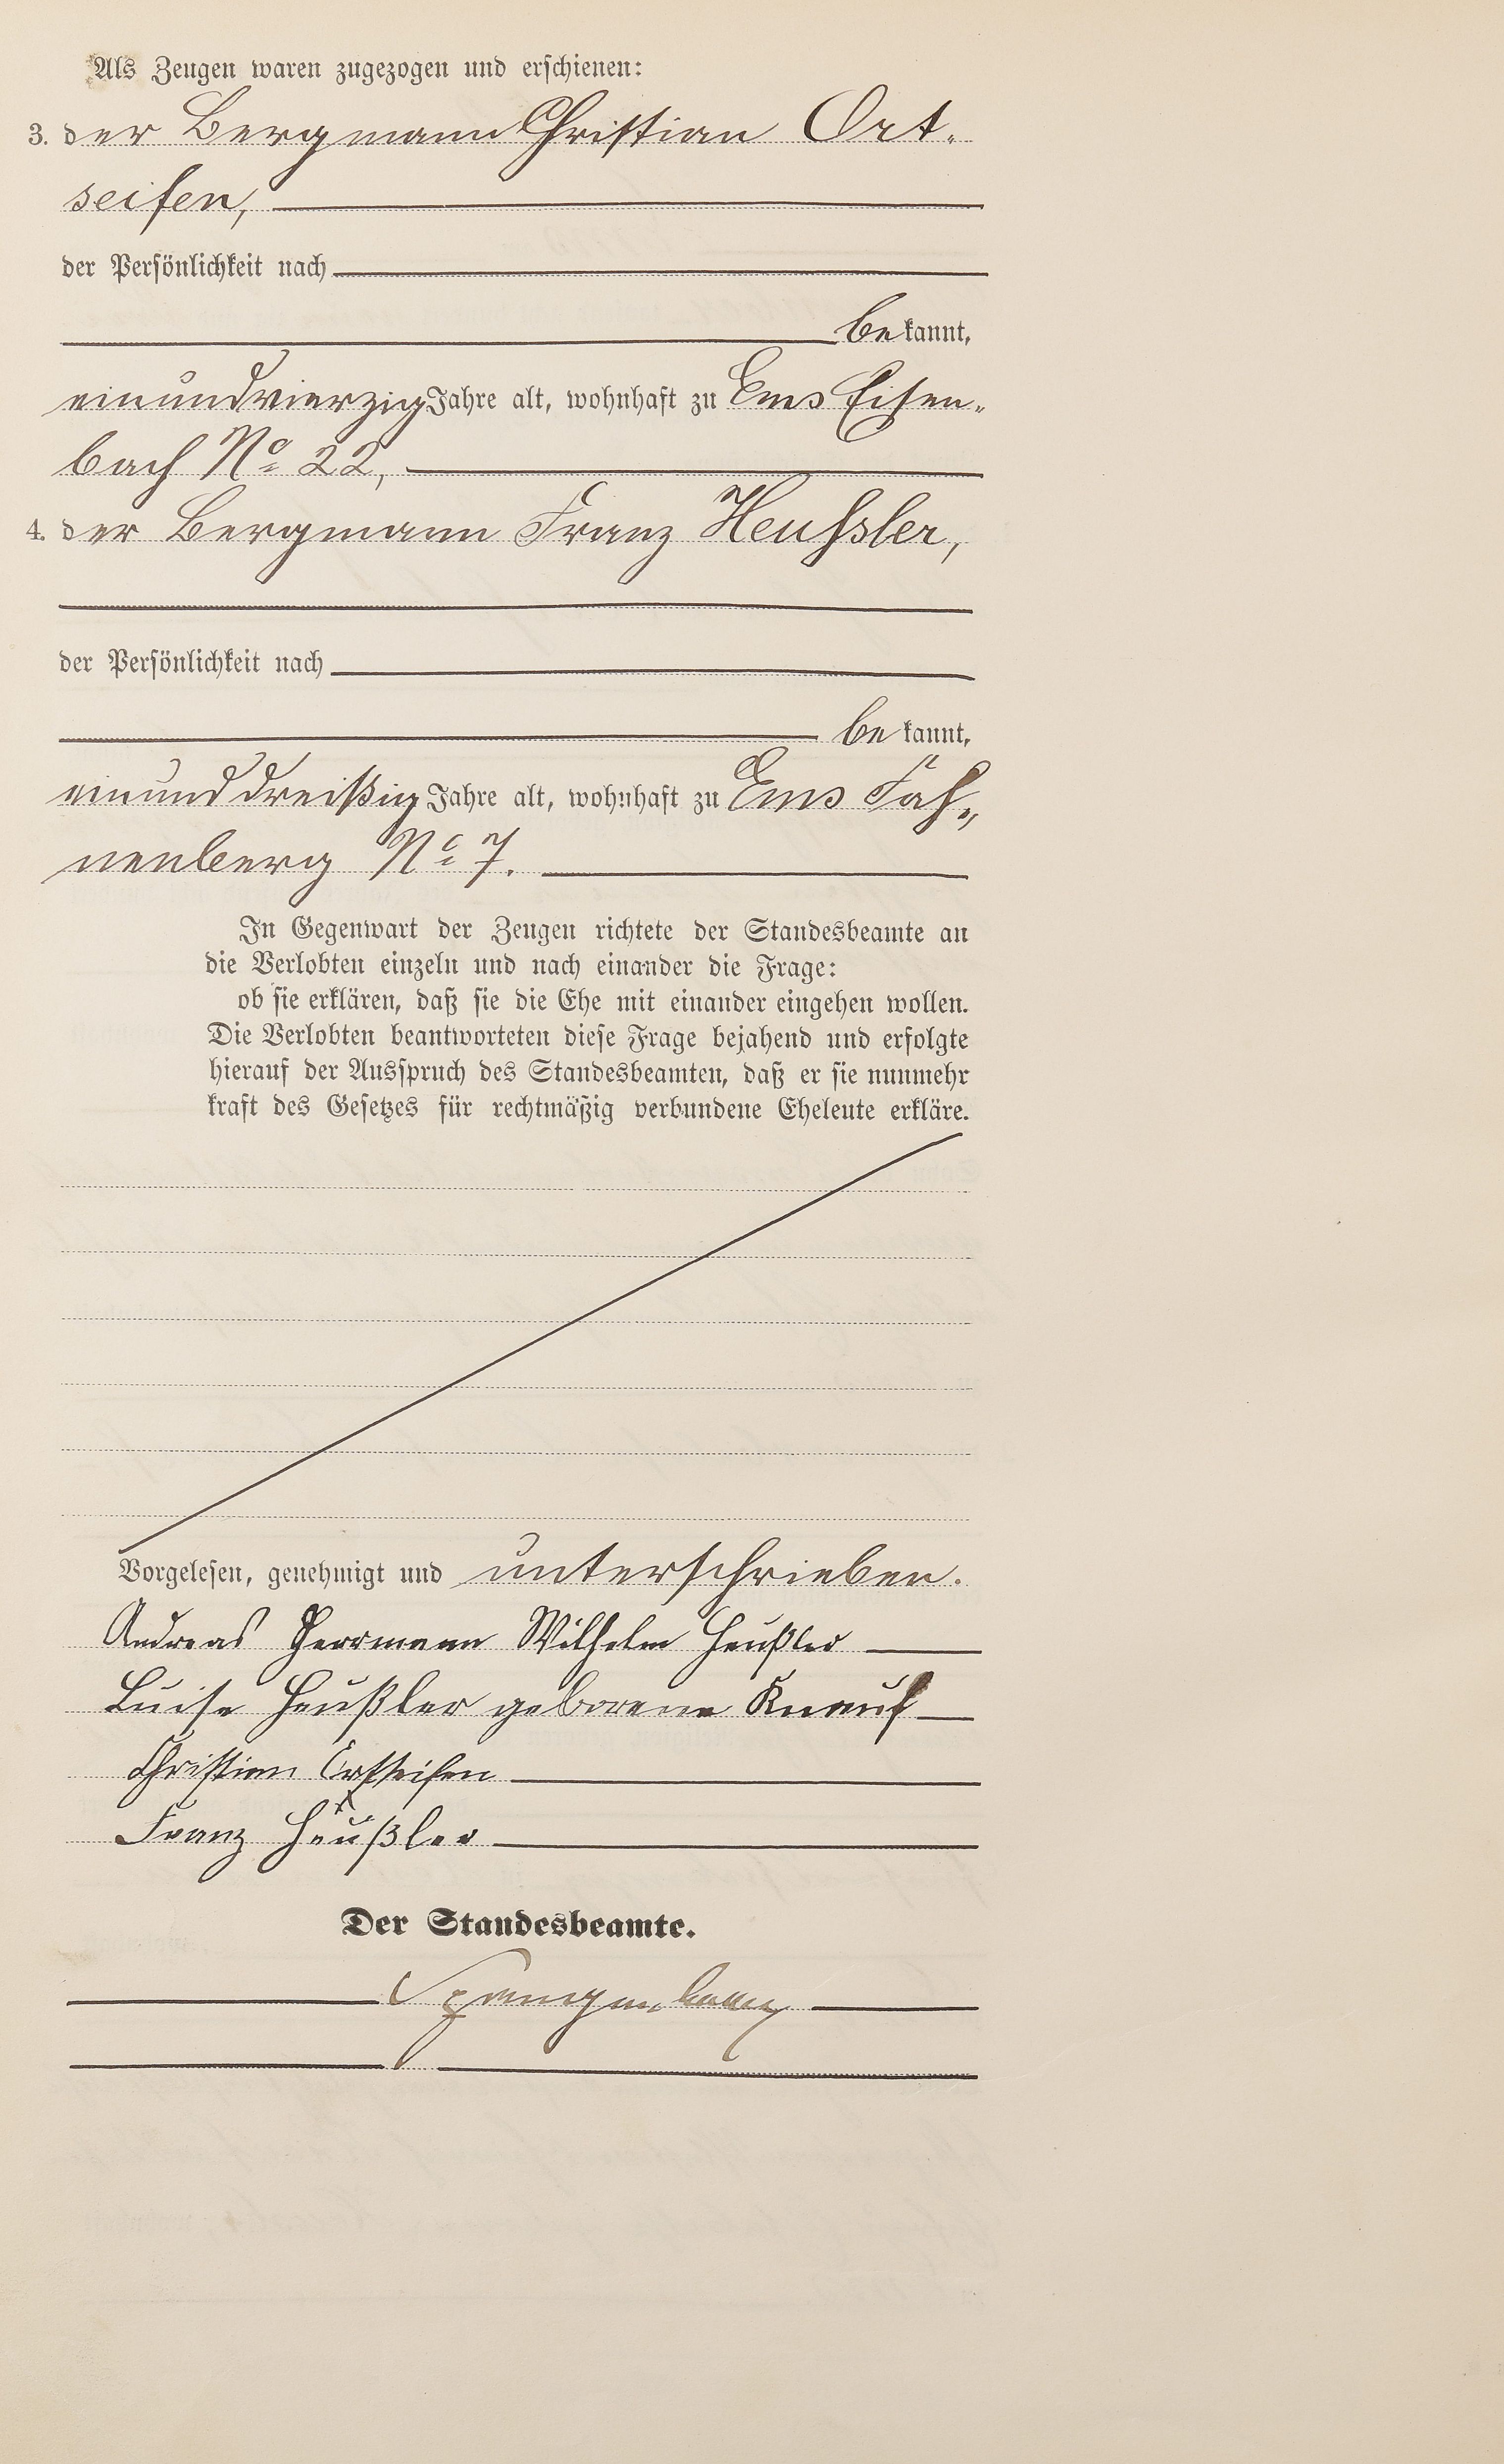 Als Zeugen waren zugezogen und erschienen:
3. der Bergmann Christian Ort-
seifen,
der Persönlichkeit nach
bekannt,
einundvierzig Jahre alt, wohnhaft zu Ems Eisen-
bach No 22,
4. der Bergmann Franz Heußler,
der Persönlichkeit nach
bekannt,
einunddreißig Jahre alt, wohnhaft zu Ems Fah-
nenberg No 7.
In Gegenwart der Zeugen richtete der Standesbeamte an
die Verlobten einzeln und nach einander die Frage:
ob sie erklären, daß sie die Ehe mit einander eingehen wollen.
Die Verlobten beantworteten diese Frage bejahend und erfolgte
hierauf der Ausspruch des Standesbeamten, daß er sie nunmehr
kraft des Gesetzes für rechtmäßig verbundene Eheleute erkläre.
Vorgelesen, genehmigt und unterschrieben.
Andreas Herrmann Wilhelm Heußler
Luise Heußler geborene Knauf
Christian Ortseifen
Franz Heußler
Der Standesbeamte.
Spangenberg